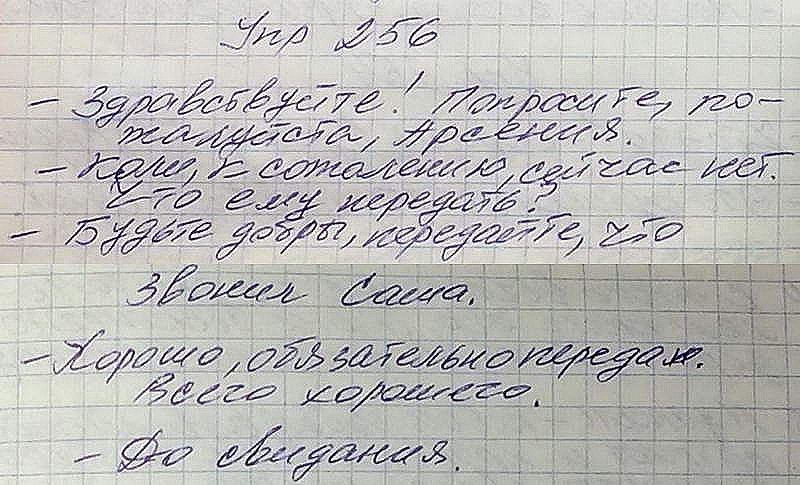 Упр 256
- Здравствуйте! Попросите, по-
жалуйста, Арсения.
- Коли, к сожалению, сейчас нет.
Что ему передать?
- Будьте добры, передайте, что
звонил Саша.
- Хорошо, обязательно передам.
Всего хорошего.
- До свидания.